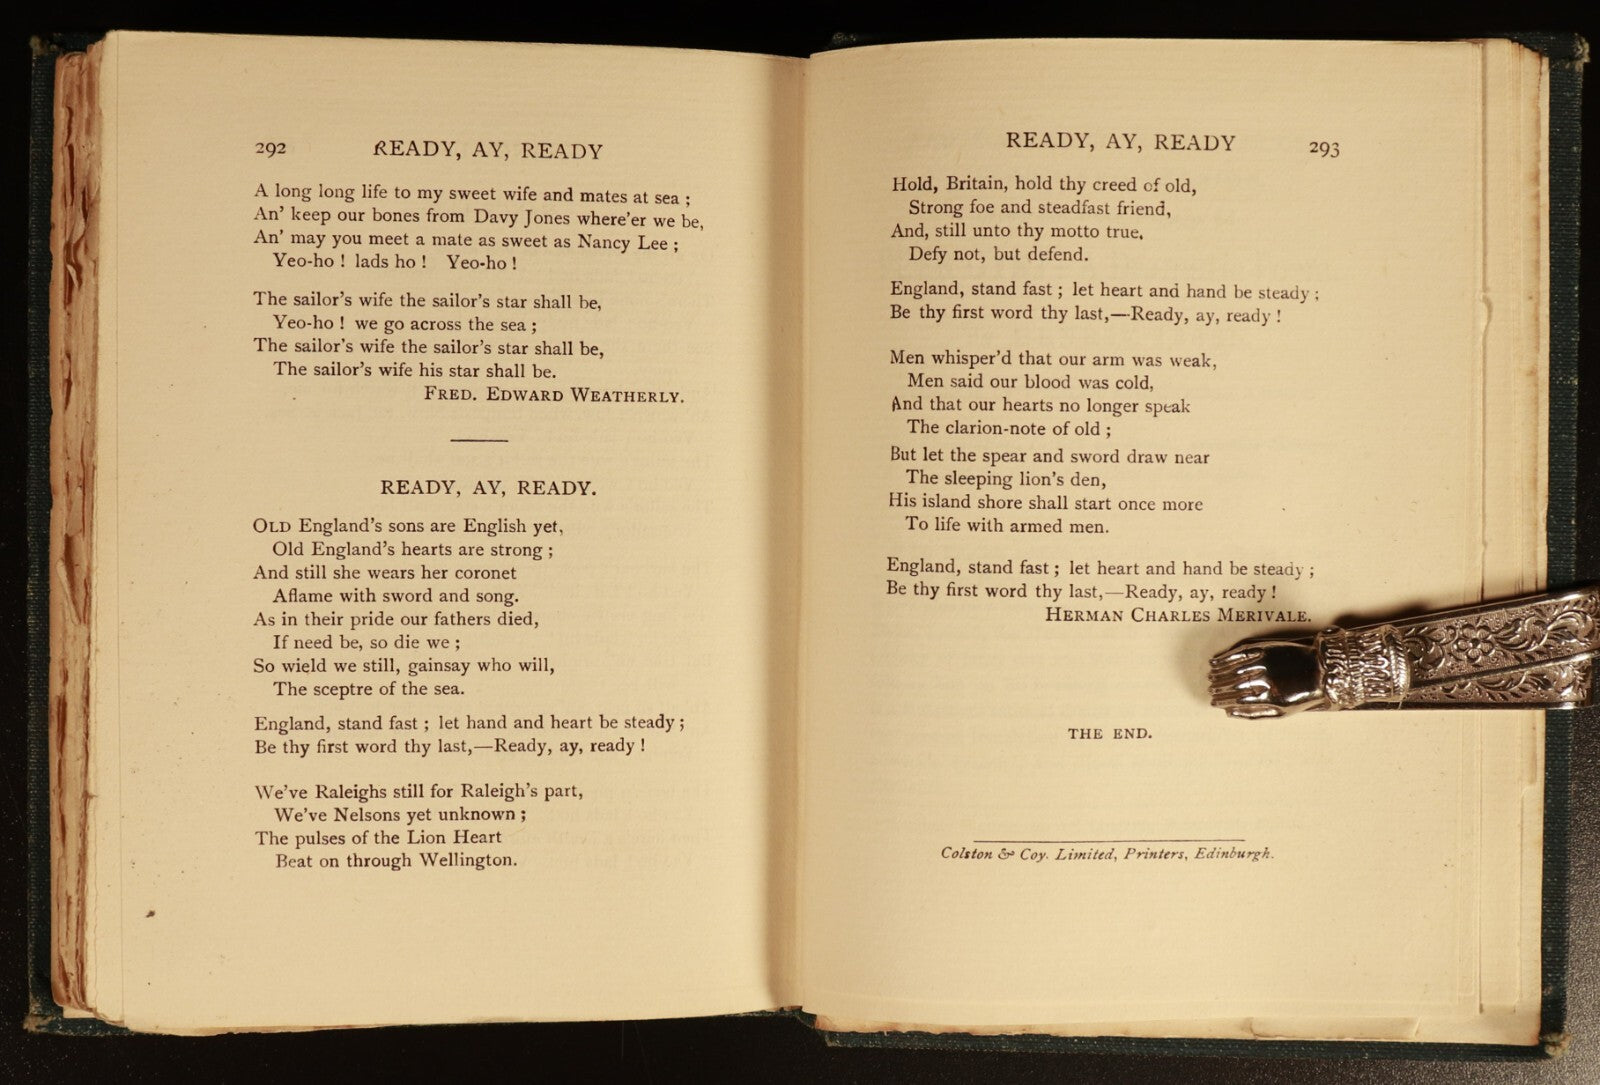 292 READY, AY, READY
A long long life to my sweet wife and mates at sea ;
An' keep our bones from Davy Jones where'er we be,
An' may you meet a mate as sweet as Nancy Lee ;
Yeo-ho ! lads ho ! Yeo-ho !
The sailor's wife the sailor's star shall be,
Yeo-ho ! we go across the sea ;
The sailor's wife the sailor's star shall be,
The sailor's wife his star shall be.
FRED. EDWARD WEATHERLY.
READY, AY, READY.
OLD England's sons are English yet,
Old England's hearts are strong ;
And still she wears her coronet
Aflame with sword and song.
As in their pride our fathers died,
If need be, so die we ;
So wield we still, gainsay who will,
The sceptre of the sea.
England, stand fast ; let hand and heart be steady ;
Be thy first word thy last,—Ready, ay, ready !
We've Raleighs still for Raleigh's part,
We've Nelsons yet unknown ;
The pulses of the Lion Heart
Beat on through Wellington.
READY, AY, READY 293
Hold, Britain, hold thy creed of old,
Strong foe and steadfast friend,
And, still unto thy motto true,
Defy not, but defend.
England, stand fast ; let heart and hand be steady ;
Be thy first word thy last,—Ready, ay, ready !
Men whisper'd that our arm was weak,
Men said our blood was cold,
And that our hearts no longer speak
The clarion-note of old ;
But let the spear and sword draw near
The sleeping lion's den,
His island shore shall start once more
To life with armed men.
England, stand fast ; let heart and hand be steady ;
Be thy first word thy last,—Ready, ay, ready !
HERMAN CHARLES MERIVALE.
THE END.
Colston & Coy. Limited, Printers, Edinburgh.